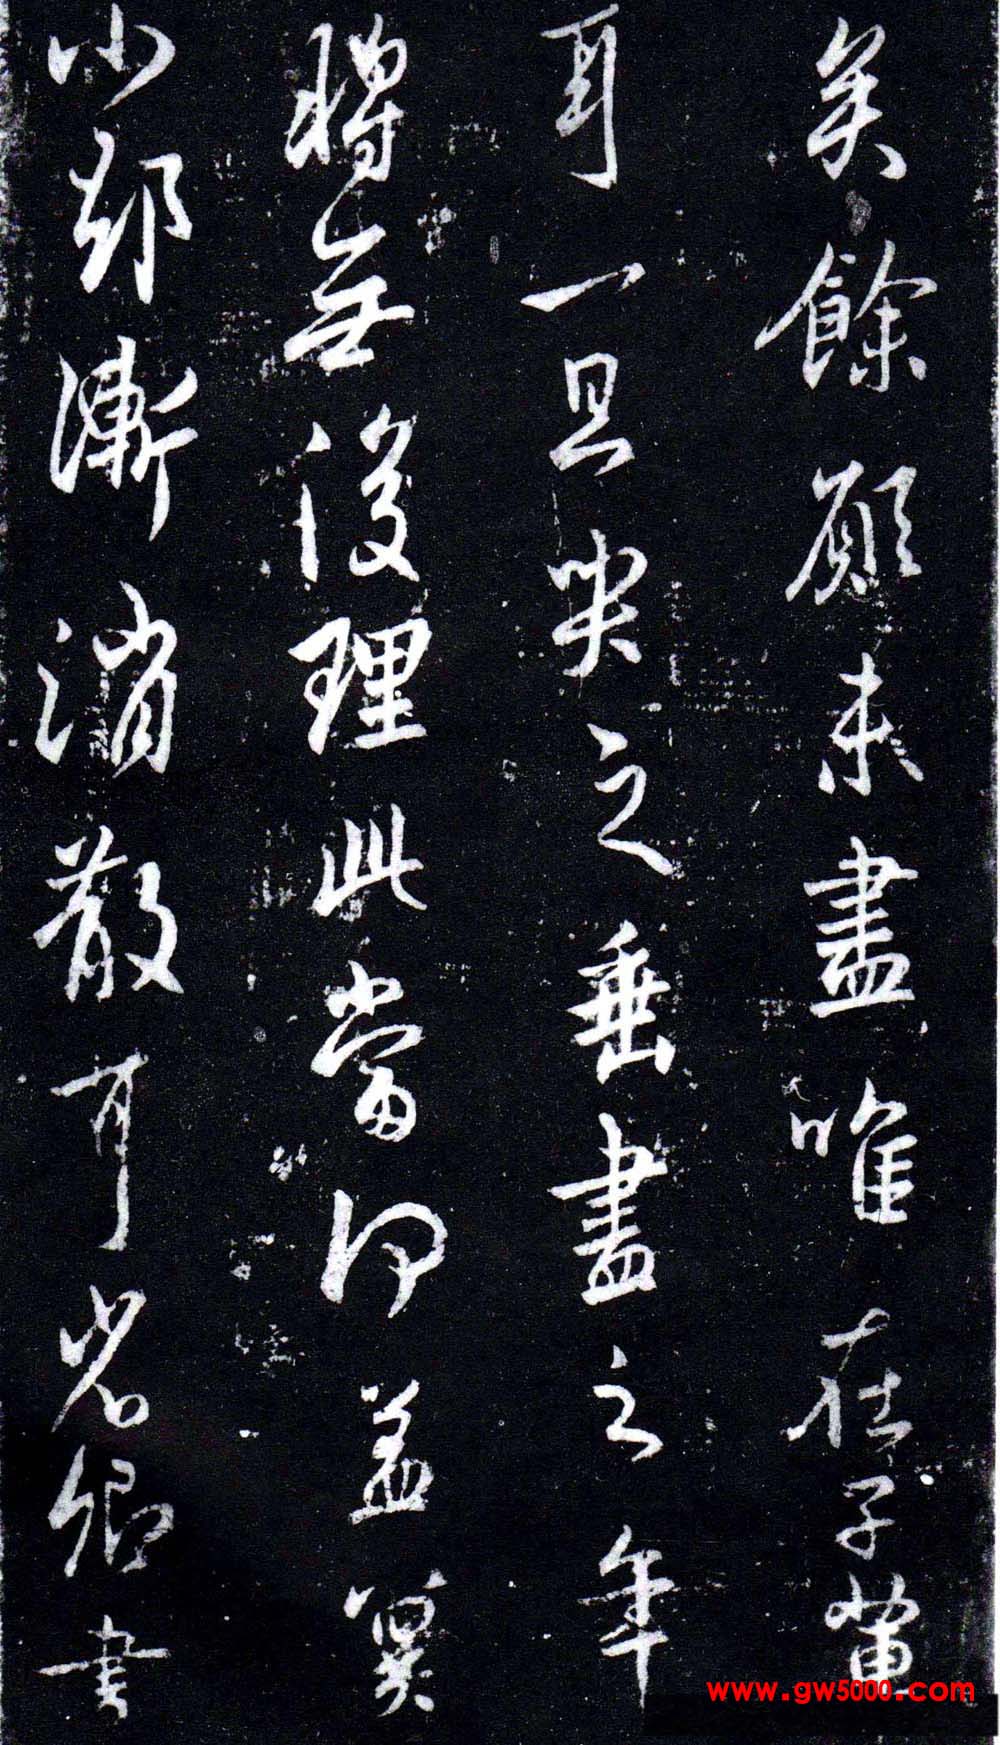 矣餘願未盡唯在子輩
耳一旦哭之垂盡之年
將無復理此當何益冥
小卻漸消散耳省卿書
www.gw5000.com